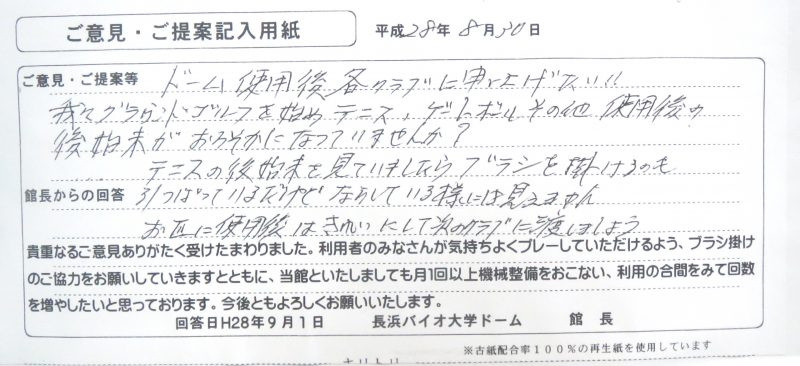 ご意見・ご提案記入用紙
平成28年8月30日
ご意見・ご提案等 ドーム使用後各クラブに申し上げたい!!
我々グラウンド・ゴルフを始めテニス、ゲートボールその他使用後の
後始末がおろそかになっていませんか?
テニスの後始末を見ていましたらブラシを掛けるのも
館長からの回答 引っぱっているだけでならしている様には見えません
お互に使用後はきれいにして次のクラブに渡しましょう
貴重なるご意見ありがたく受けたまわりました。利用者のみなさんが気持ちよくプレーしていただけるよう、ブラシ掛け
のご協力をお願いしていきますとともに、当館といたしましても月1回以上機械整備をおこない、利用の合間をみて回数
を増やしたいと思っております。今後ともよろしくお願いいたします。
回答日H28年9月1日 長浜バイオ大学ドーム 館長
※古紙配合率100%の再生紙を使用しています
キリトリ